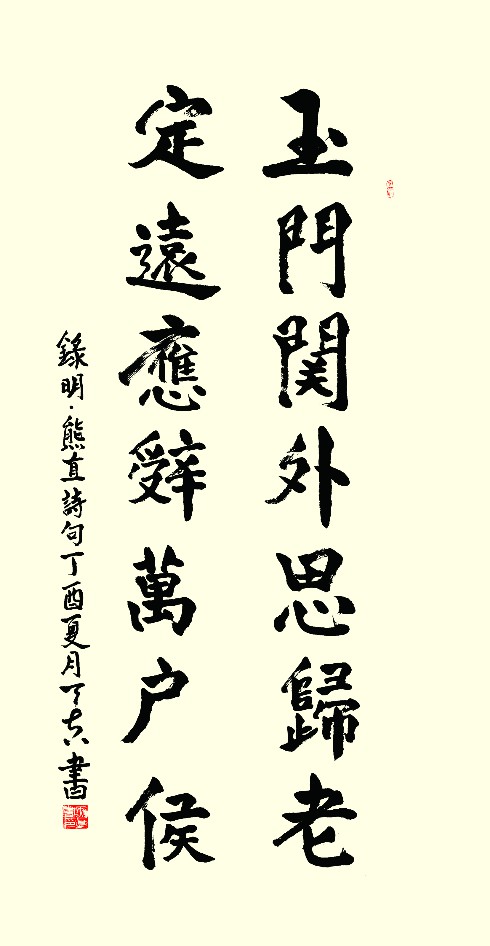 玉門関外思歸老
定遠應辭萬户侯
錄明·熊直詩句丁酉夏月丁 書